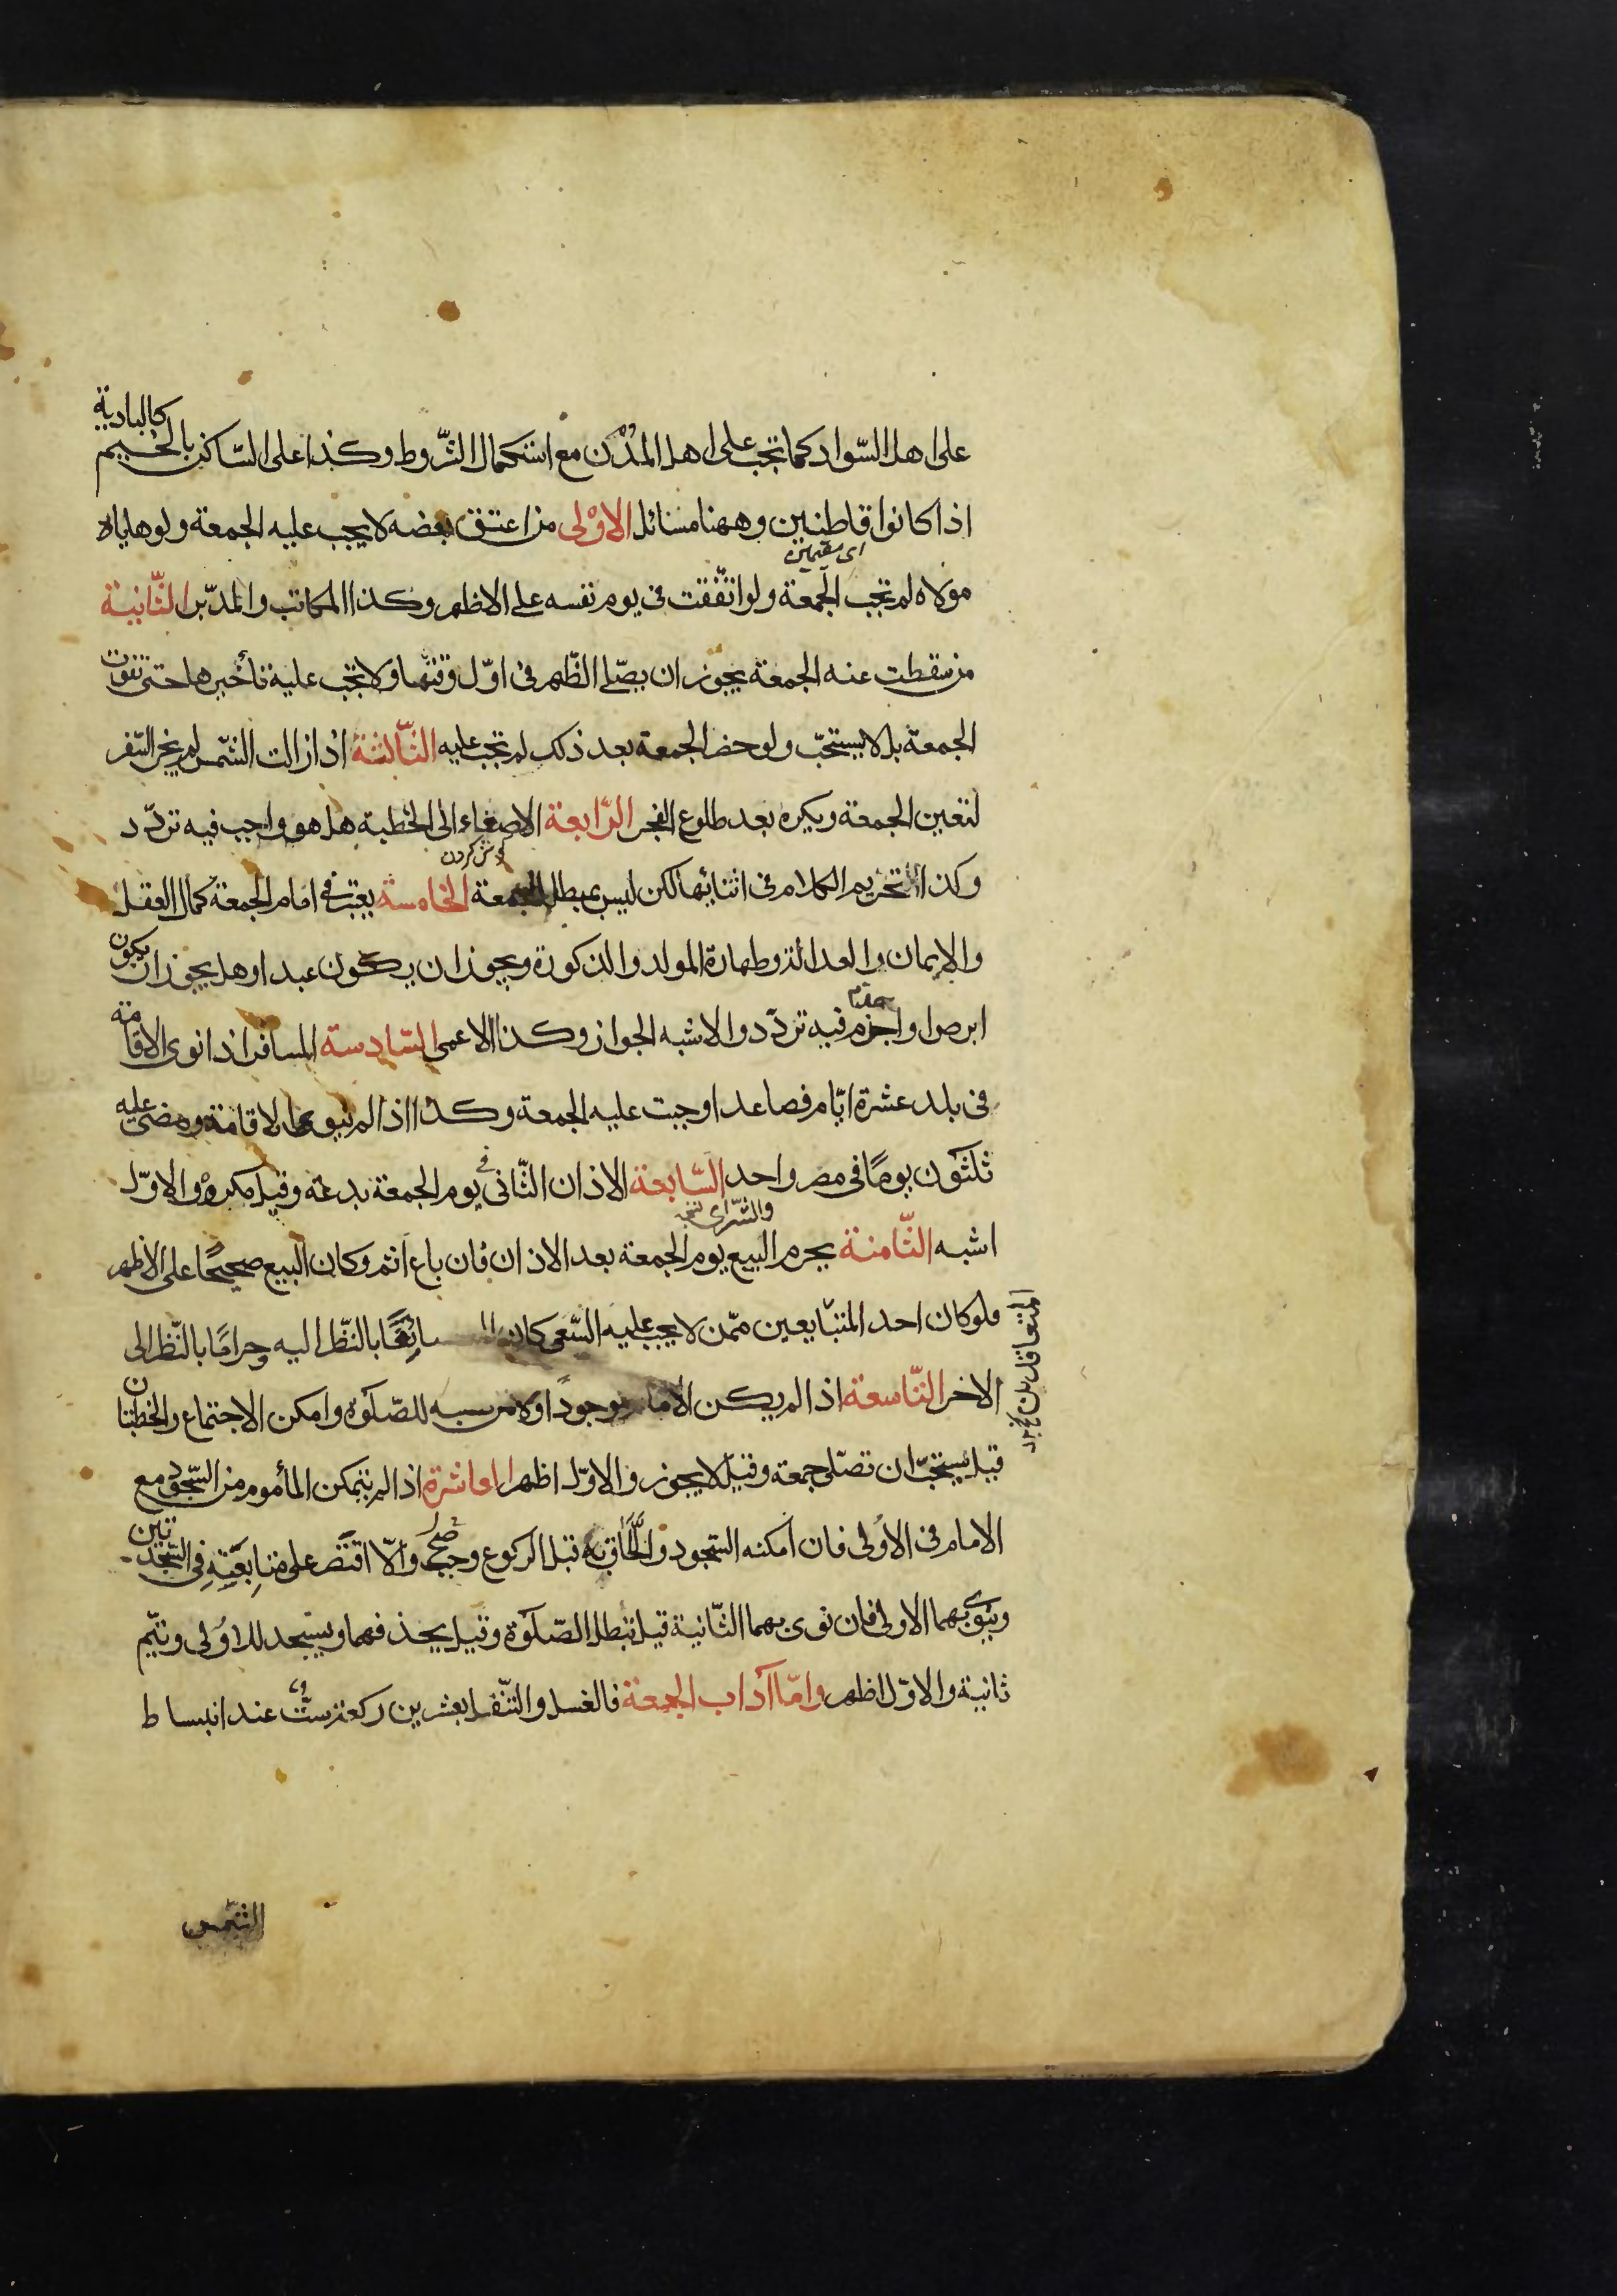 كالبادية
على اهل السّواد كما تجب على اهل المُدُن مع استكمال الشّروط وكذا على السّاكن بالخيم
اذا كانوا قاطنين وههنا مسائل الاوْلى من اعتق بعضه لا يجب عليه الجمعة ولو هاياه
اى مقيمين
مولاه لم تجب الجمعة ولو اتّفقت فى يوم نفسه على الاظهر وكذا المكاتب والمدبّر الثّانية
من سقطت عنه الجمعة يجوز ان يصّلى الظّهر فى اوّل وقتها ولا تجب عليه تأخيرها حتى تفوت
الجمعة بل لا يستحبّ ولو حضر الجمعة بعد ذلك لم تجب عليه الثّالثة اذا زالت الشّمس لم يجز السّفر
لتعين الجمعة ويكره بعد طلوع الفجر الرّابعة الاصغاء الى الخطبة هل هو واجب فيه تردّد
گوش كردن
وكذا تحريم الكلام فى اثنائها لكن ليس بمبطل للجمعة الخامسة يعتبر فى امام الجمعة كمال العقل
والايمان والعدالة وطهارة المولد والذكورة ويجوز ان يكون عبدا وهل يجوز ان يكون
ابرص او اجزم فيه تردّد والاشبه الجواز وكذا الاعمى السّادسة المسافر اذا نوى الاقامة
فى بلد عشرة ايّام فصاعدا وجبت عليه الجمعة وكذا اذا لم ينوى الاقامة ومضى عليه
ثلثون يومًا فى مصر واحد السّابعة الاذان الثّانى فى يوم الجمعة بدعة وقيل مكروه والاوّل
اشبه الثّامنة يحرم البيع يوم الجمعة بعد الاذان فان باع اثم وكان البيع صحيحًا على الاظهر
فلو كان احد المتبايعين ممّن لا يجب عليه السّعى كان سائغًا بالنّظر اليه وحرامًا بالنّظر الى
الاخر التّاسعة اذا لم يكن الامام موجودًا ولا من نسبه للصّلوة وامكن الاجتماع والخطبتان
قيل يستحبّ ان تصّلى جمعة وقيل لا يجوز والاوّل اظهر العاشرة اذا لم يتمكن المأموم من السّجود مع
الامام فى الاولى فان امكنه السّجود والّلحاق به قبل الركوع صحّ والّا اقتصر على متابعته فى السّجدتين
وينوى بهما الاولى فان نوى بهما الثّانية قيل تبطل الصّلوة وقيل يحذفهما ويسجد للاولى ويتمّ
ثانية والاوّل اظهر وامّا آداب الجمعة فالغسل والتّنفل بعشرين ركعة ستّ عند انبساط
الشّمس